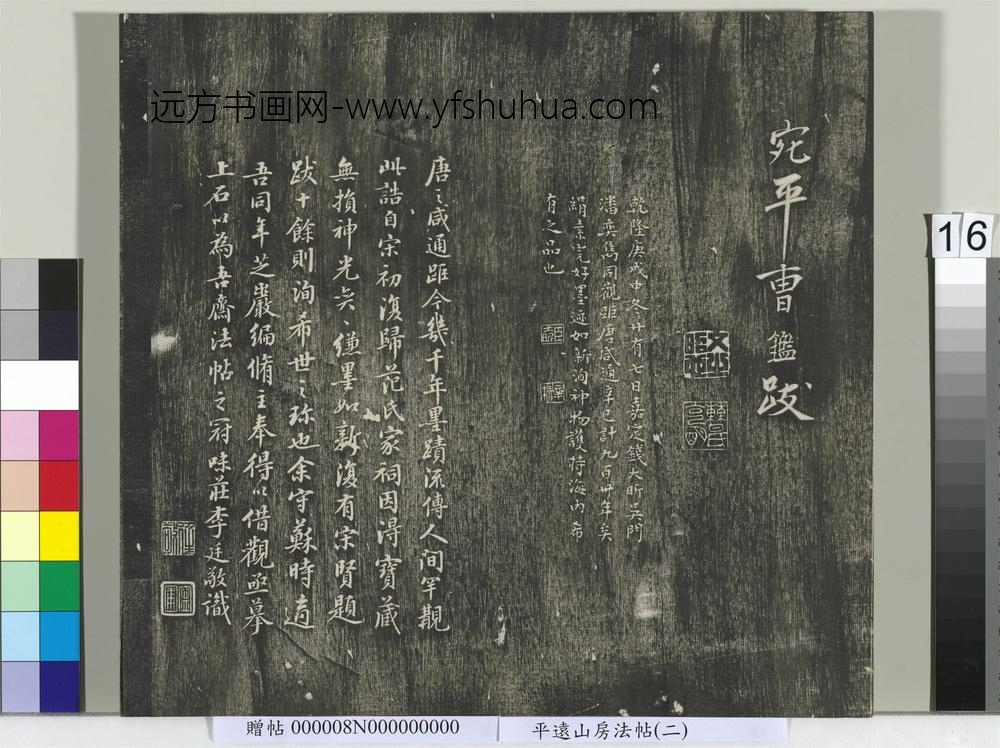 远方书画网-www.yfshuhua.com
宛平曹鑑跋
乾隆庚戌中冬廿有七日嘉定錢大昕吳門
潘奕雋同觀距唐咸通辛巳計九百卅年矣
絹素完好墨迹如新洵神物護持海內希
有之品也
唐之咸通距今幾千年墨蹟流傳人間罕覯
此誥自宋初復歸范氏家祠因得寶藏
無損神光奕〻縑墨如新復有宋賢題
跋十餘則洵希世之珍也余守蘇時適
吾同年芝巖編脩主奉得以借觀亟摹
上石以為吾齋法帖之冠味莊李廷敬識
16
贈帖 000008N000000000
平遠山房法帖(二)